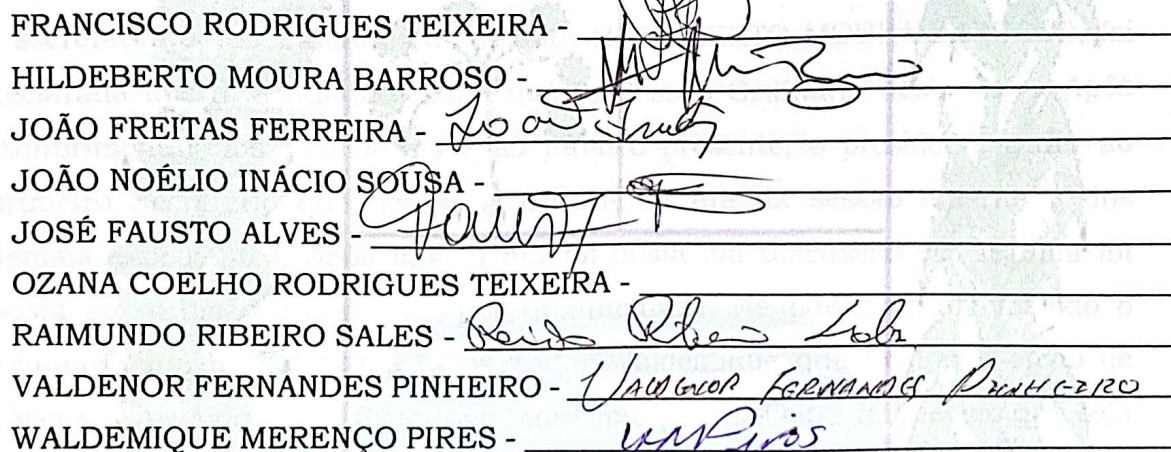 FRANCISCO RODRIGUES TEIXEIRA -
HILDEBERTO MOURA BARROSO -
JOÃO FREITAS FERREIRA - João
JOÃO NOÉLIO INÁCIO SOUSA -
JOSÉ FAUSTO ALVES - Faust
OZANA COELHO RODRIGUES TEIXEIRA -
RAIMUNDO RIBEIRO SALES -
VALDENOR FERNANDES PINHEIRO - VALDENOR FERNANDES PINHEIRO
WALDEMIQUE MERENÇO PIRES - WMPires